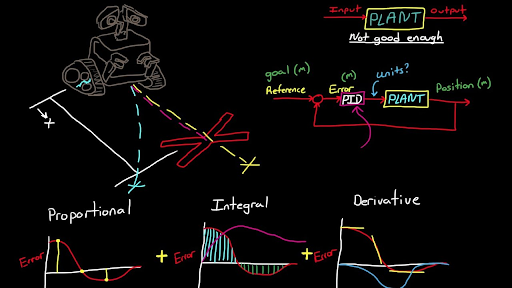 Input PLANT Output
Not good enough
goal (m) (m) units?
Reference Error PID PLANT Position (m)
x
Proportional Integral Derivative
Error + Error + Error